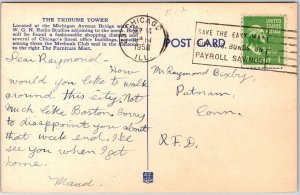 THE TRIBUNE TOWER
Located at the Michigan Avenue Bridge with the
W. G. N. Radio Studios adjoining to the north. Here
will be found a fashionable shopping district and
several of Chicago's finest office buildings,
among them the Medinah Club and in the distance
to the right The Furniture Mart.
CHICAGO
ILL.
SAVE THE EASY
BUY BONDS
PAYROLL SAVINGS
POST CARD
Dear Raymond – How
would you like to walk
around this city. Not
much like Boston. Sorry
to disappoint you about
that week end. I'll
see you when I get
home.
Maud.
Mr Raymond Bixby
Putnam,
Conn.
R.F.D.